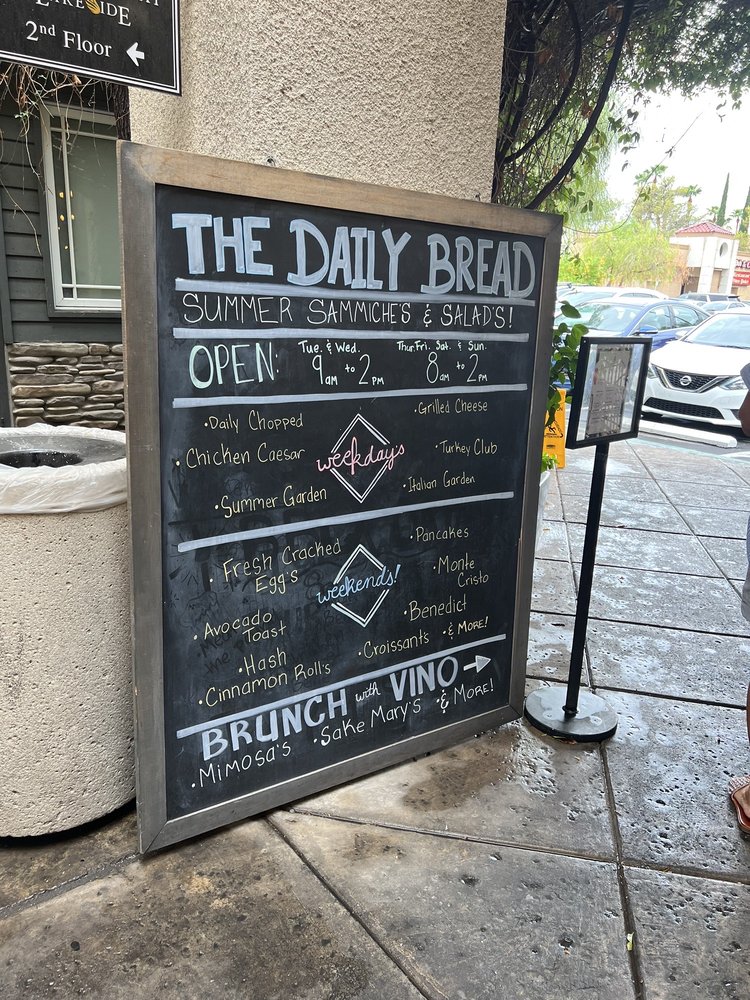 LAKESIDE
2nd Floor
THE DAILY BREAD
SUMMER SAMMICHE'S & SALAD'S!
OPEN: Tue. & Wed. 9am to 2pm Thur. Fri. Sat. & Sun. 8am to 2pm
• Daily Chopped
• Grilled Cheese
• Chicken Caesar
weekday's
• Turkey Club
• Summer Garden
• Italian Garden
• Fresh Cracked Egg's
• Pancakes
weekends!
• Monte Cristo
• Avocado Toast
• Benedict
• Hash
• Croissants
• & MORE!
• Cinnamon Roll's
BRUNCH with VINO →
• Mimosa's • Sake Mary's • & More!
NISSAN